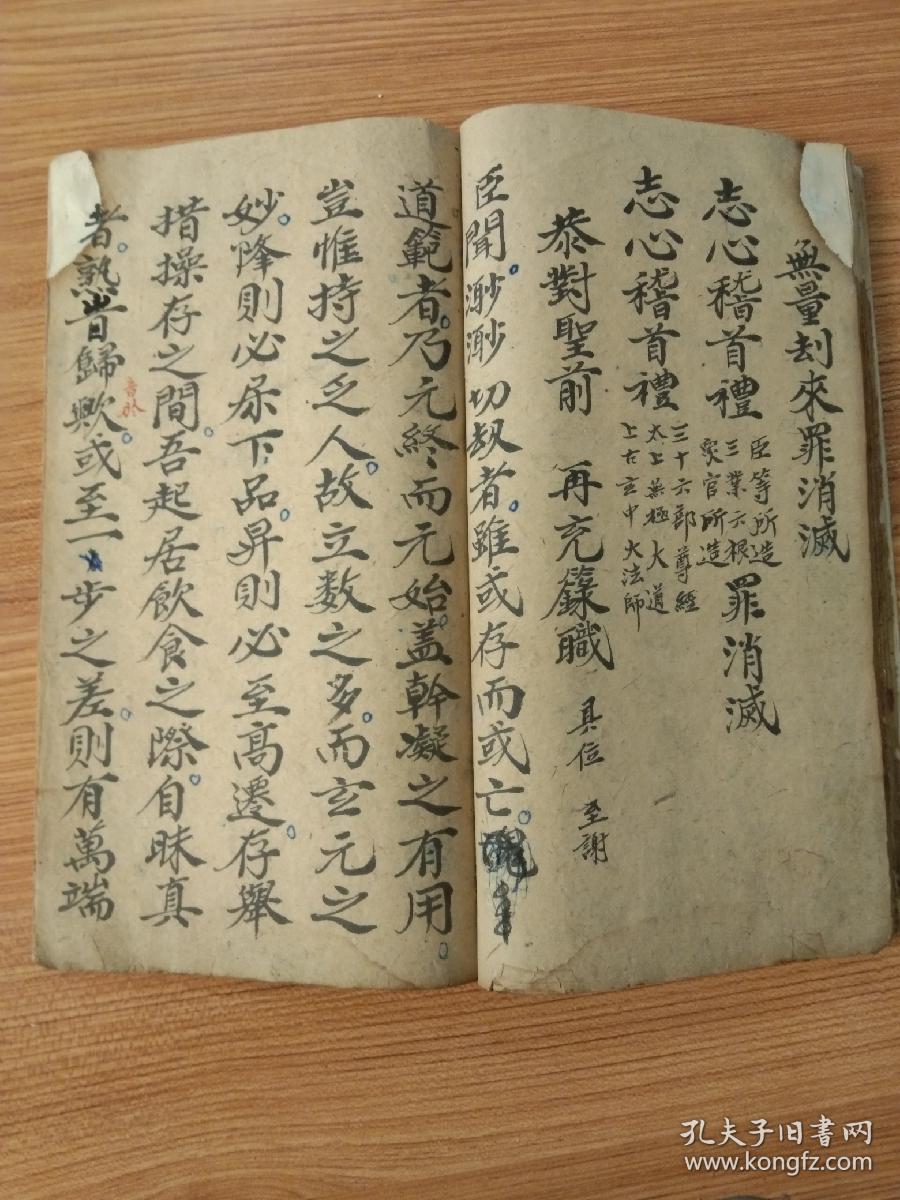 無量刼來罪消滅
志心稽首禮 臣等所造 三業六根 眾官所造 罪消滅
志心稽首禮 三十六部尊經 太上無極大道 上古玄中大法師
恭對聖前 再充籙職 具位 至謝
臣聞渺渺切劫者雖或存而或亡
道範者乃元終而元始蓋幹凝之有用
豈惟持之乏人故立数之多而玄元之
妙降則必居下品昇則必至高遷存舉
措操存之間吾起居飲食之際自昧真
者熟昔歸歟或至一步之差則有萬端
孔夫子旧书网
www.kongfz.com